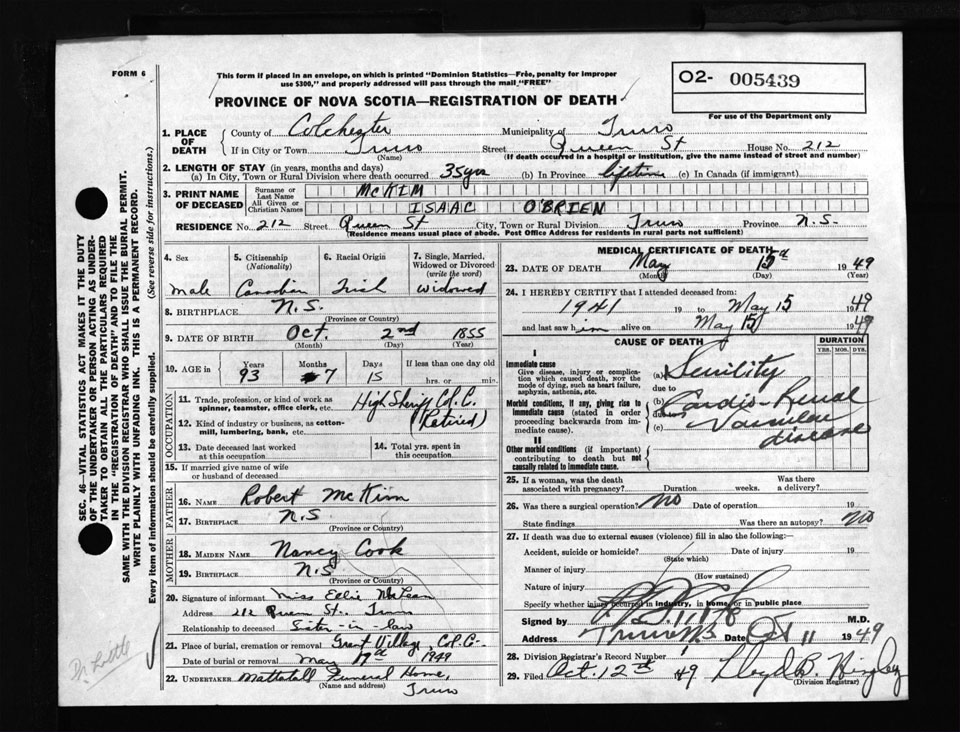 FORM 6
This form if placed in an envelope, on which is printed "Dominion Statistics—Free, penalty for improper
use $300," and properly addressed will pass through the mail "FREE"
PROVINCE OF NOVA SCOTIA—REGISTRATION OF DEATH
O2- 005439
For use of the Department only
1. PLACE OF DEATH
County of Colchester Municipality of Truro
If in City or Town Truro Street Queen St House No. 212
(Name) (If death occurred in a hospital or institution, give the name instead of street and number)
2. LENGTH OF STAY (in years, months and days)
(a) In City, Town or Rural Division where death occurred 35 yrs (b) In Province lifetime (c) In Canada (if immigrant)
3. PRINT NAME OF DECEASED
Surname or Last Name McKIM
All Given or Christian Names ISAAC O'BRIEN
RESIDENCE No. 212 Street Queen St City, Town or Rural Division Truro Province N.S.
(Residence means usual place of abode. Post Office Address for residents in rural parts not sufficient)
4. Sex
male
5. Citizenship (Nationality)
Canadian
6. Racial Origin
Irish
7. Single, Married, Widowed or Divorced (write the word)
widowed
8. BIRTHPLACE N.S.
(Province or Country)
9. DATE OF BIRTH Oct. 2nd 1855
(Month) (Day) (Year)
10. AGE in Years Months Days If less than one day old
93 7 15 hrs. or min.
OCCUPATION
11. Trade, profession, or kind of work as spinner, teamster, office clerk, etc. High Sheriff Col. C.
(Retired)
12. Kind of industry or business, as cotton-mill, lumbering, bank, etc.
13. Date deceased last worked at this occupation
14. Total yrs. spent in this occupation
15. If married give name of wife or husband of deceased
FATHER
16. NAME Robert McKim
17. BIRTHPLACE N.S
(Province or Country)
MOTHER
18. MAIDEN NAME Nancy Cook
19. BIRTHPLACE N.S
(Province or Country)
20. Signature of informant Miss Ellie McLean
Address 212 Queen St., Truro
Relationship to deceased Sister-in-law
21. Place of burial, cremation or removal Great Village, Col. C.
Date of burial or removal May 17th 1949
22. UNDERTAKER Mattatall Funeral Home,
(Name and address) Truro
MEDICAL CERTIFICATE OF DEATH
23. DATE OF DEATH May 15th 1949
(Month) (Day) (Year)
24. I HEREBY CERTIFY that I attended deceased from:
1941 19 to May 15 1949
and last saw him alive on May 15 1949
CAUSE OF DEATH
DURATION
YRS. MOS. DYS.
I
Immediate cause
Give disease, injury or complication which caused death, NOT the mode of dying, such as heart failure, asphyxia, asthenia, etc.
(a) Senility
due to
Morbid conditions, if any, giving rise to immediate cause (stated in order proceeding backwards from immediate cause).
(b) Cardio-Renal
due to
(c) Vascular disease
II
Other morbid conditions (if important) contributing to death but not causally related to immediate cause.
25. If a woman, was the death associated with pregnancy? Duration weeks. Was there a delivery?
26. Was there a surgical operation? No Date of operation 19
State findings Was there an autopsy? No
27. If death was due to external causes (violence) fill in also the following:—
Accident, suicide or homicide? Date of injury 19
(State which)
Manner of injury
(How sustained)
Nature of injury
Specify whether injury occurred in industry, in home, or in public place
Signed by M.D.
Address Truro N.S Date Oct 11 1949
28. Division Registrar's Record Number
29. Filed Oct. 12th 49 Lloyd B.
(Division Registrar)
SEC. 46—VITAL STATISTICS ACT MAKES IT THE DUTY
OF THE UNDERTAKER OR PERSON ACTING AS UNDER-
TAKER TO OBTAIN ALL THE PARTICULARS REQUIRED
IN THE "REGISTRATION OF DEATH" AND TO FILE THE
SAME WITH THE DIVISION REGISTRAR WHO SHALL ISSUE THE BURIAL PERMIT.
WRITE PLAINLY WITH UNFADING INK. THIS IS A PERMANENT RECORD.
Every item of information should be carefully supplied. (See reverse side for instructions.)